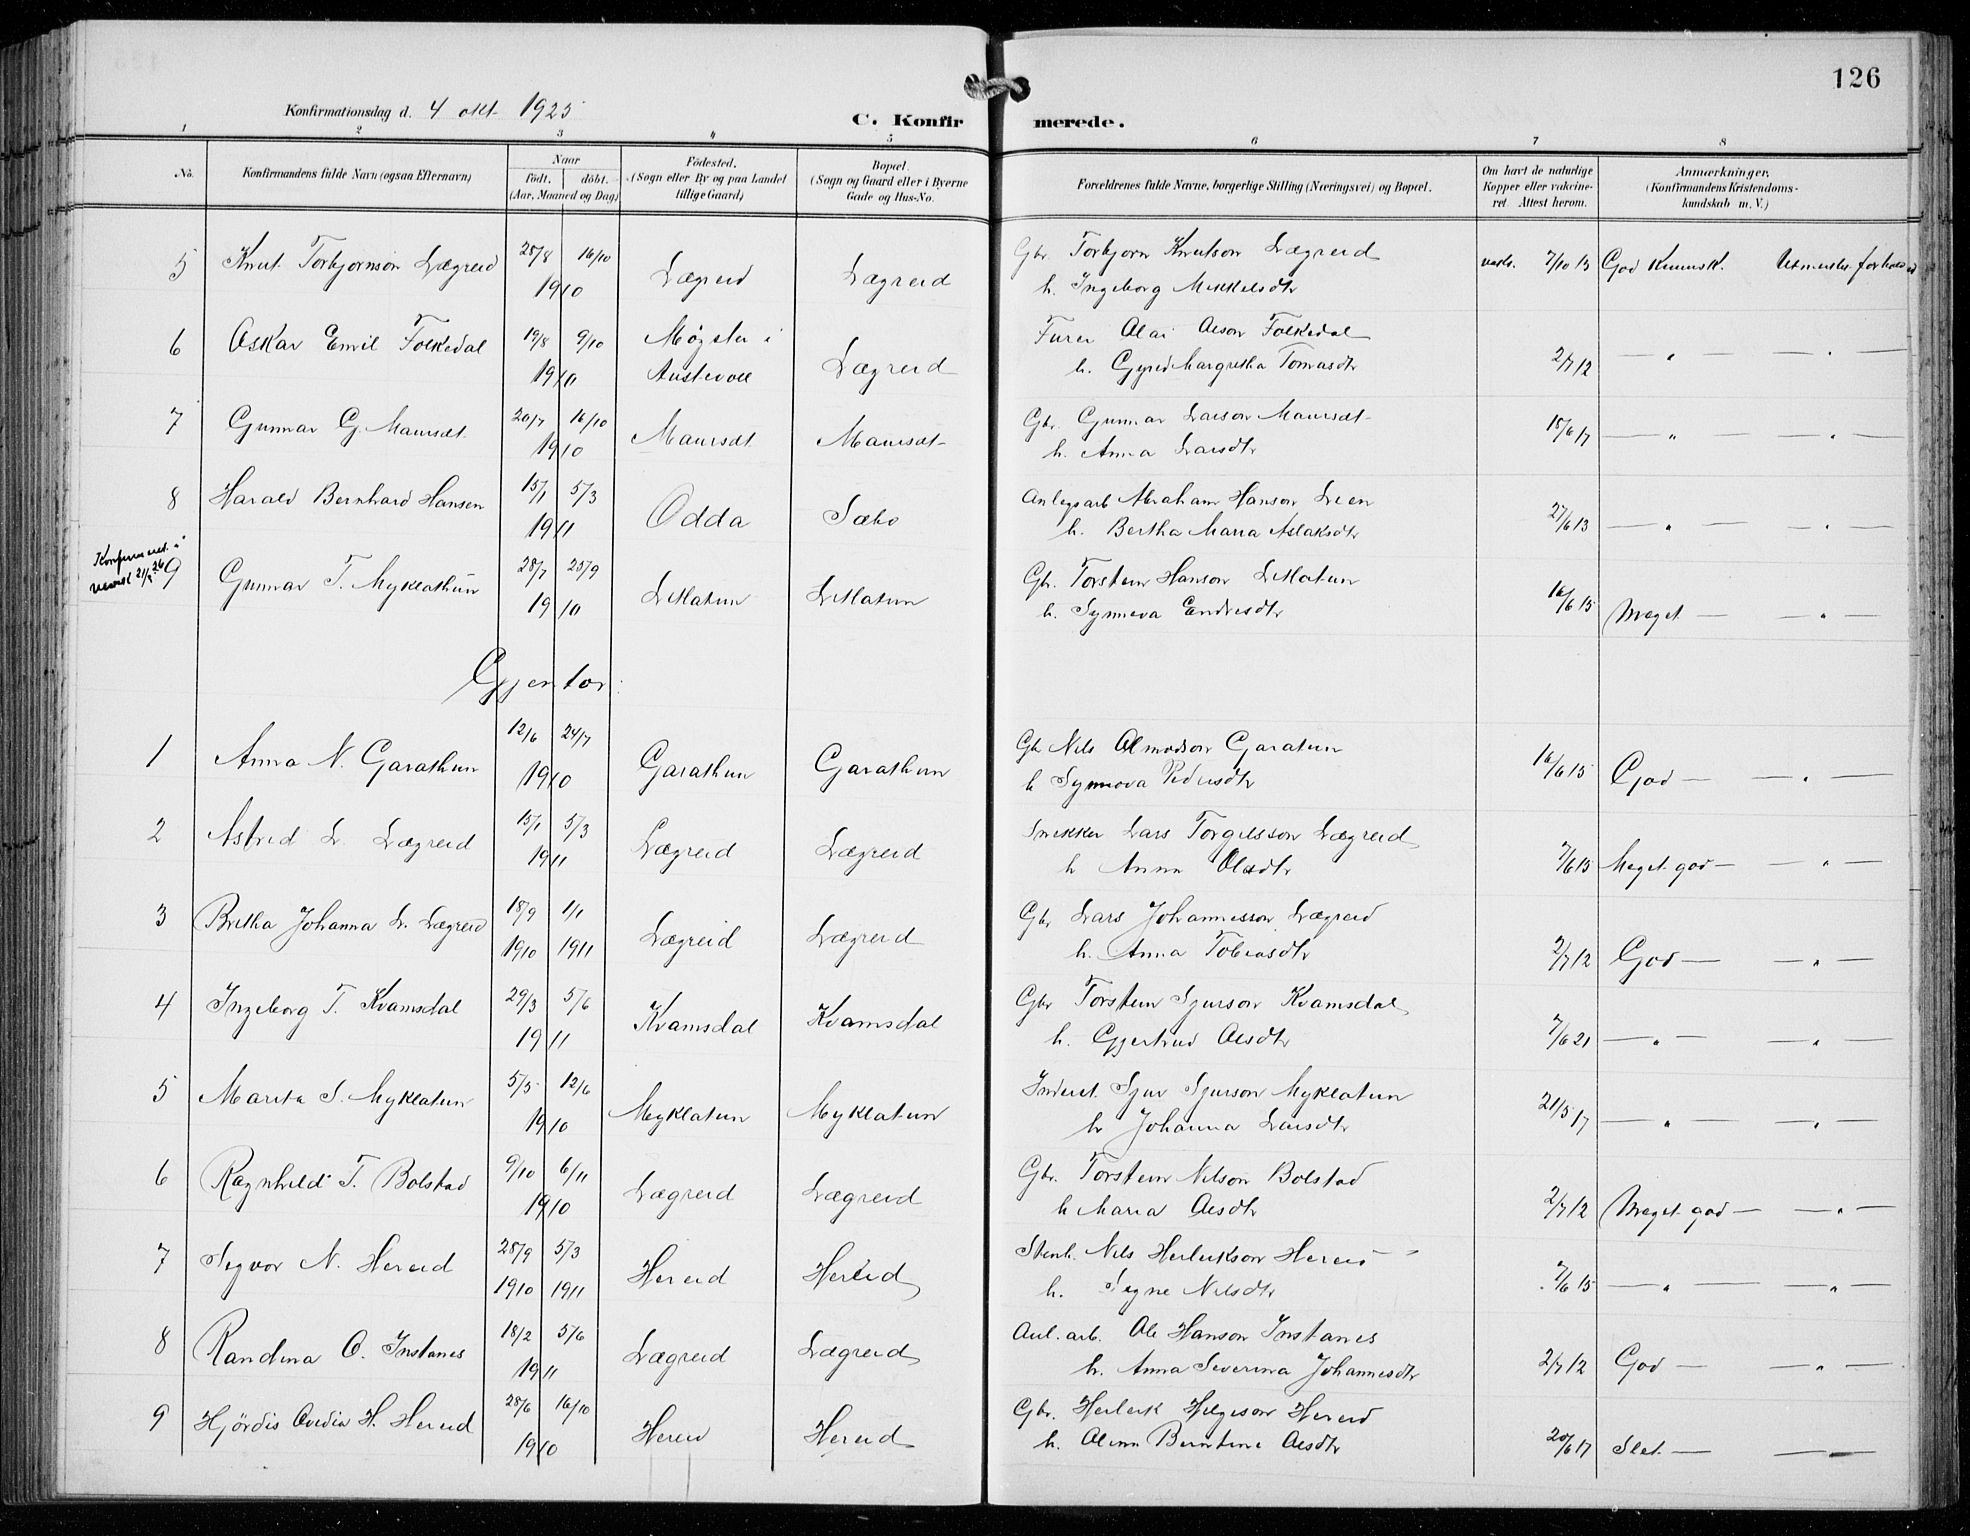 126
Konfirmationsdag d. 4 okt 1925
C. Konfirmerede.
1 2 3 4 5 6 7 8
No.
Konfirmandens fulde Navn (ogsaa Efternavn)
Naar
födt. döbt.
(Aar, Maaned og Dag)
Födested.
(Sogn eller By og paa Landet
tillige Gaard)
Bopæl.
(Sogn og Gaard eller i Byerne
Gade og Hus-No.
Forældrenes fulde Navne, borgerlige Stilling (Næringsvei) og Bopæl.
Om havt de naturlige
Kopper eller vakcine-
ret Attest herom.
Anmærkninger.
(Konfirmandens Kristendoms-
kundskab m. V.)
5 Knut Torbjornson Lægreid 28/8 16/10 Lægreid Lægreid Gbr. Torbjorn Knutson Lægreid vaks. 7/10 13 God Kunnsk.
1910 h. Ingeborg Mikkelsdtr
6 Oskar Emil Folkedal 19/8 9/10 Møgster i Lægreid Furer Olai Olson Folkedal 2/7 12 — " — — " —
1910 Austevoll h. Gyrid Margretha Tomasdtr
7 Gunnar G. Maursæt 20/7 16/10 Maursæt Maursæt Gbr. Gunnar Larson Maursæt 15/6 17 — " — — " —
1910 h. Anna Larsdtr
8 Harald Bernhard Hansen 15/1 5/3 Odda Sæbo Anlegsarb Abraham Hanson Lien 27/6 13 — " — — " —
1911 h. Bertha Maria Aslaksdtr
Konfirmeret i
21/3 26
9 Gunnar T. Myklathun 28/7 25/9 Litlatun Litlatun Gbr. Torstein Hanson Litlatun 16/6 15 Meget — — " —
1910 h. Synneva Endresdtr
Gjentor:
1 Anna N. Garathun 12/6 24/7 Garathun Garathun Gbr Nils Olmodson Garatun 16/6 15 God — — " —
1910 h Synneva Pedersdtr
2 Astrid L. Lægreid 15/1 5/3 Lægreid Lægreid Snekker Lars Torgilsson Lægreid 7/6 15 Meget god — — " —
1911 h Anna Olsdtr
3 Britha Johanna L. Lægreid 18/9 1/1 Lægreid Lægreid Gbr. Lars Johannesson Lægreid 2/7 12 God — — " —
1910 1911 h. Anna Tobiasdtr
4 Ingeborg T. Kvamsdal 29/3 5/6 Kvamsdal Kvamsdal Gbr Torstein Sjurson Kvamsdal 7/6 21 — " — — " —
1911 h. Gjertrud Olsdtr
5 Marita S. Myklatun 5/5 12/6 Myklatun Myklatun Inderst Sjur Sjurson Myklatun 21/5 17 — " — — " —
1910 h Johanna Larsdtr
6 Ragnhild T. Bolstad 9/10 6/11 Lægreid Lægreid Gbr. Torstein Nilson Bolstad 2/7 12 Meget god — — " —
1910 h Maria Olsdtr
7 Sigvor N. Hereid 28/9 5/3 Hereid Hereid Stenh. Nils Herleikson Hereid 7/6 15 — " — — " —
1910 1911 h. Signe Nilsdtr
8 Randina O. Instanes 18/2 5/6 Lægreid Lægreid Anl. arb. Ole Hanson Instanes 2/7 12 God — — " —
1911 h. Anna Severina Johannesdtr
9 Hjördis Ovedia H. Hereid 28/6 16/10 Hereid Hereid Gbr. Herleik Helgeson Hereid 20/6 17 Slet — — " —
1910 h. Olina Berntine Olsdtr